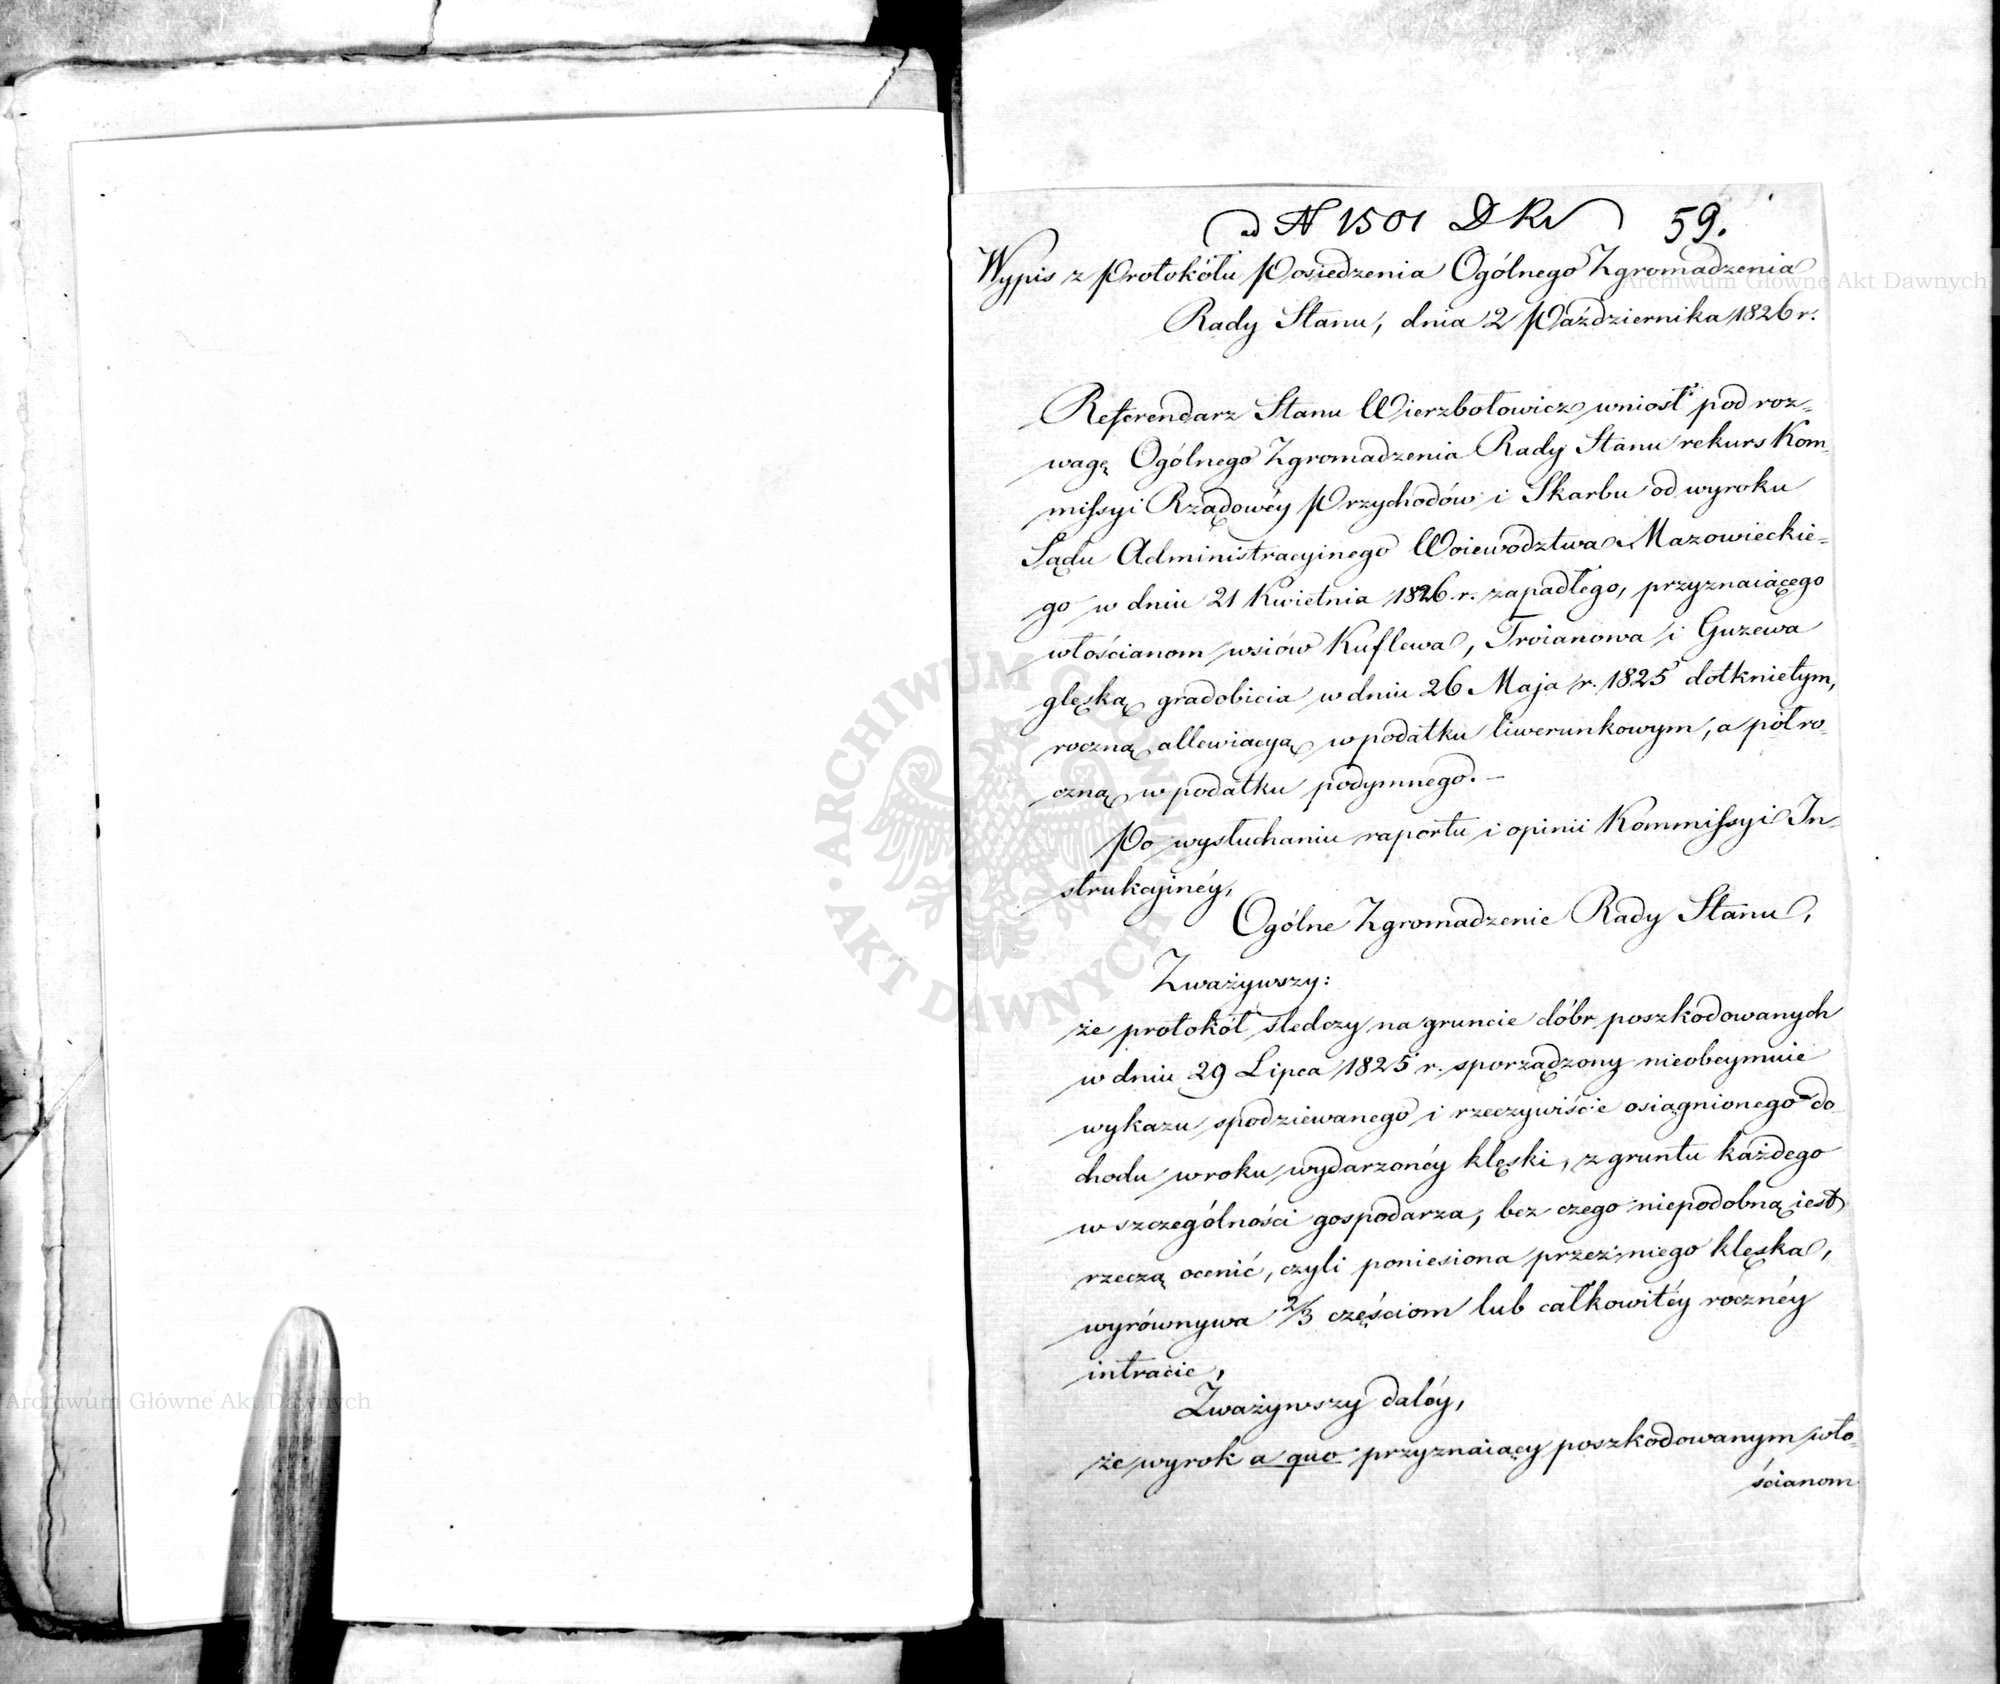 ad N 1501 DKr 59.
Wypis z Protokółu Posiedzenia Ogólnego Zgromadzenia
Rady Stanu, dnia 2 Października 1826 r.
Referendarz Stanu Wierzbołowicz wniósł pod roz-
wagę Ogólnego Zgromadzenia Rady Stanu rekurs Kom-
missyi Rządowéy Przychodów i Skarbu od wyroku
Sądu Administracyinego Woiewództwa Mazowieckie-
go w dniu 21 Kwietnia 1826 r. zapadłego, przyznaiącego
włościanom wsiów Kuflewa, Troianowa i Guzewa
glęską gradobicia w dniu 26 Maja r. 1825 dotknietym,
roczną allewiacyą w podatku liwerunkowym, a półro-
czną w podatku podymnego. –
Po wysłuchaniu raportu i opinii Kommissyi In-
strukcyinéy,
Ogólne Zgromadzenie Rady Stanu,
Zważywszy:
że protokół śledczy na gruncie dóbr poszkodowanych
w dniu 29 Lipca 1825 r. sporządzony nieobeymuie
wykazu spodziewanego i rzeczywiście osiągnionego do-
chodu w roku wydarzonéy klęski, z gruntu każdego
w szczególności gospodarza, bez czego niepodobną iest
rzeczą ocenić, czyli poniesiona przez niego klęska,
wyrównywa 2/3 częściom lub całkowitéy rocznéy
intracie,
Zważywszy daléy,
że wyrok a quo przyznaiący poszkodowanym wło-
ścianom
Archiwum Główne Akt Dawnych
Archiwum Główne Akt Dawnych
ARCHIWUM GŁÓWNE · AKT DAWNYCH